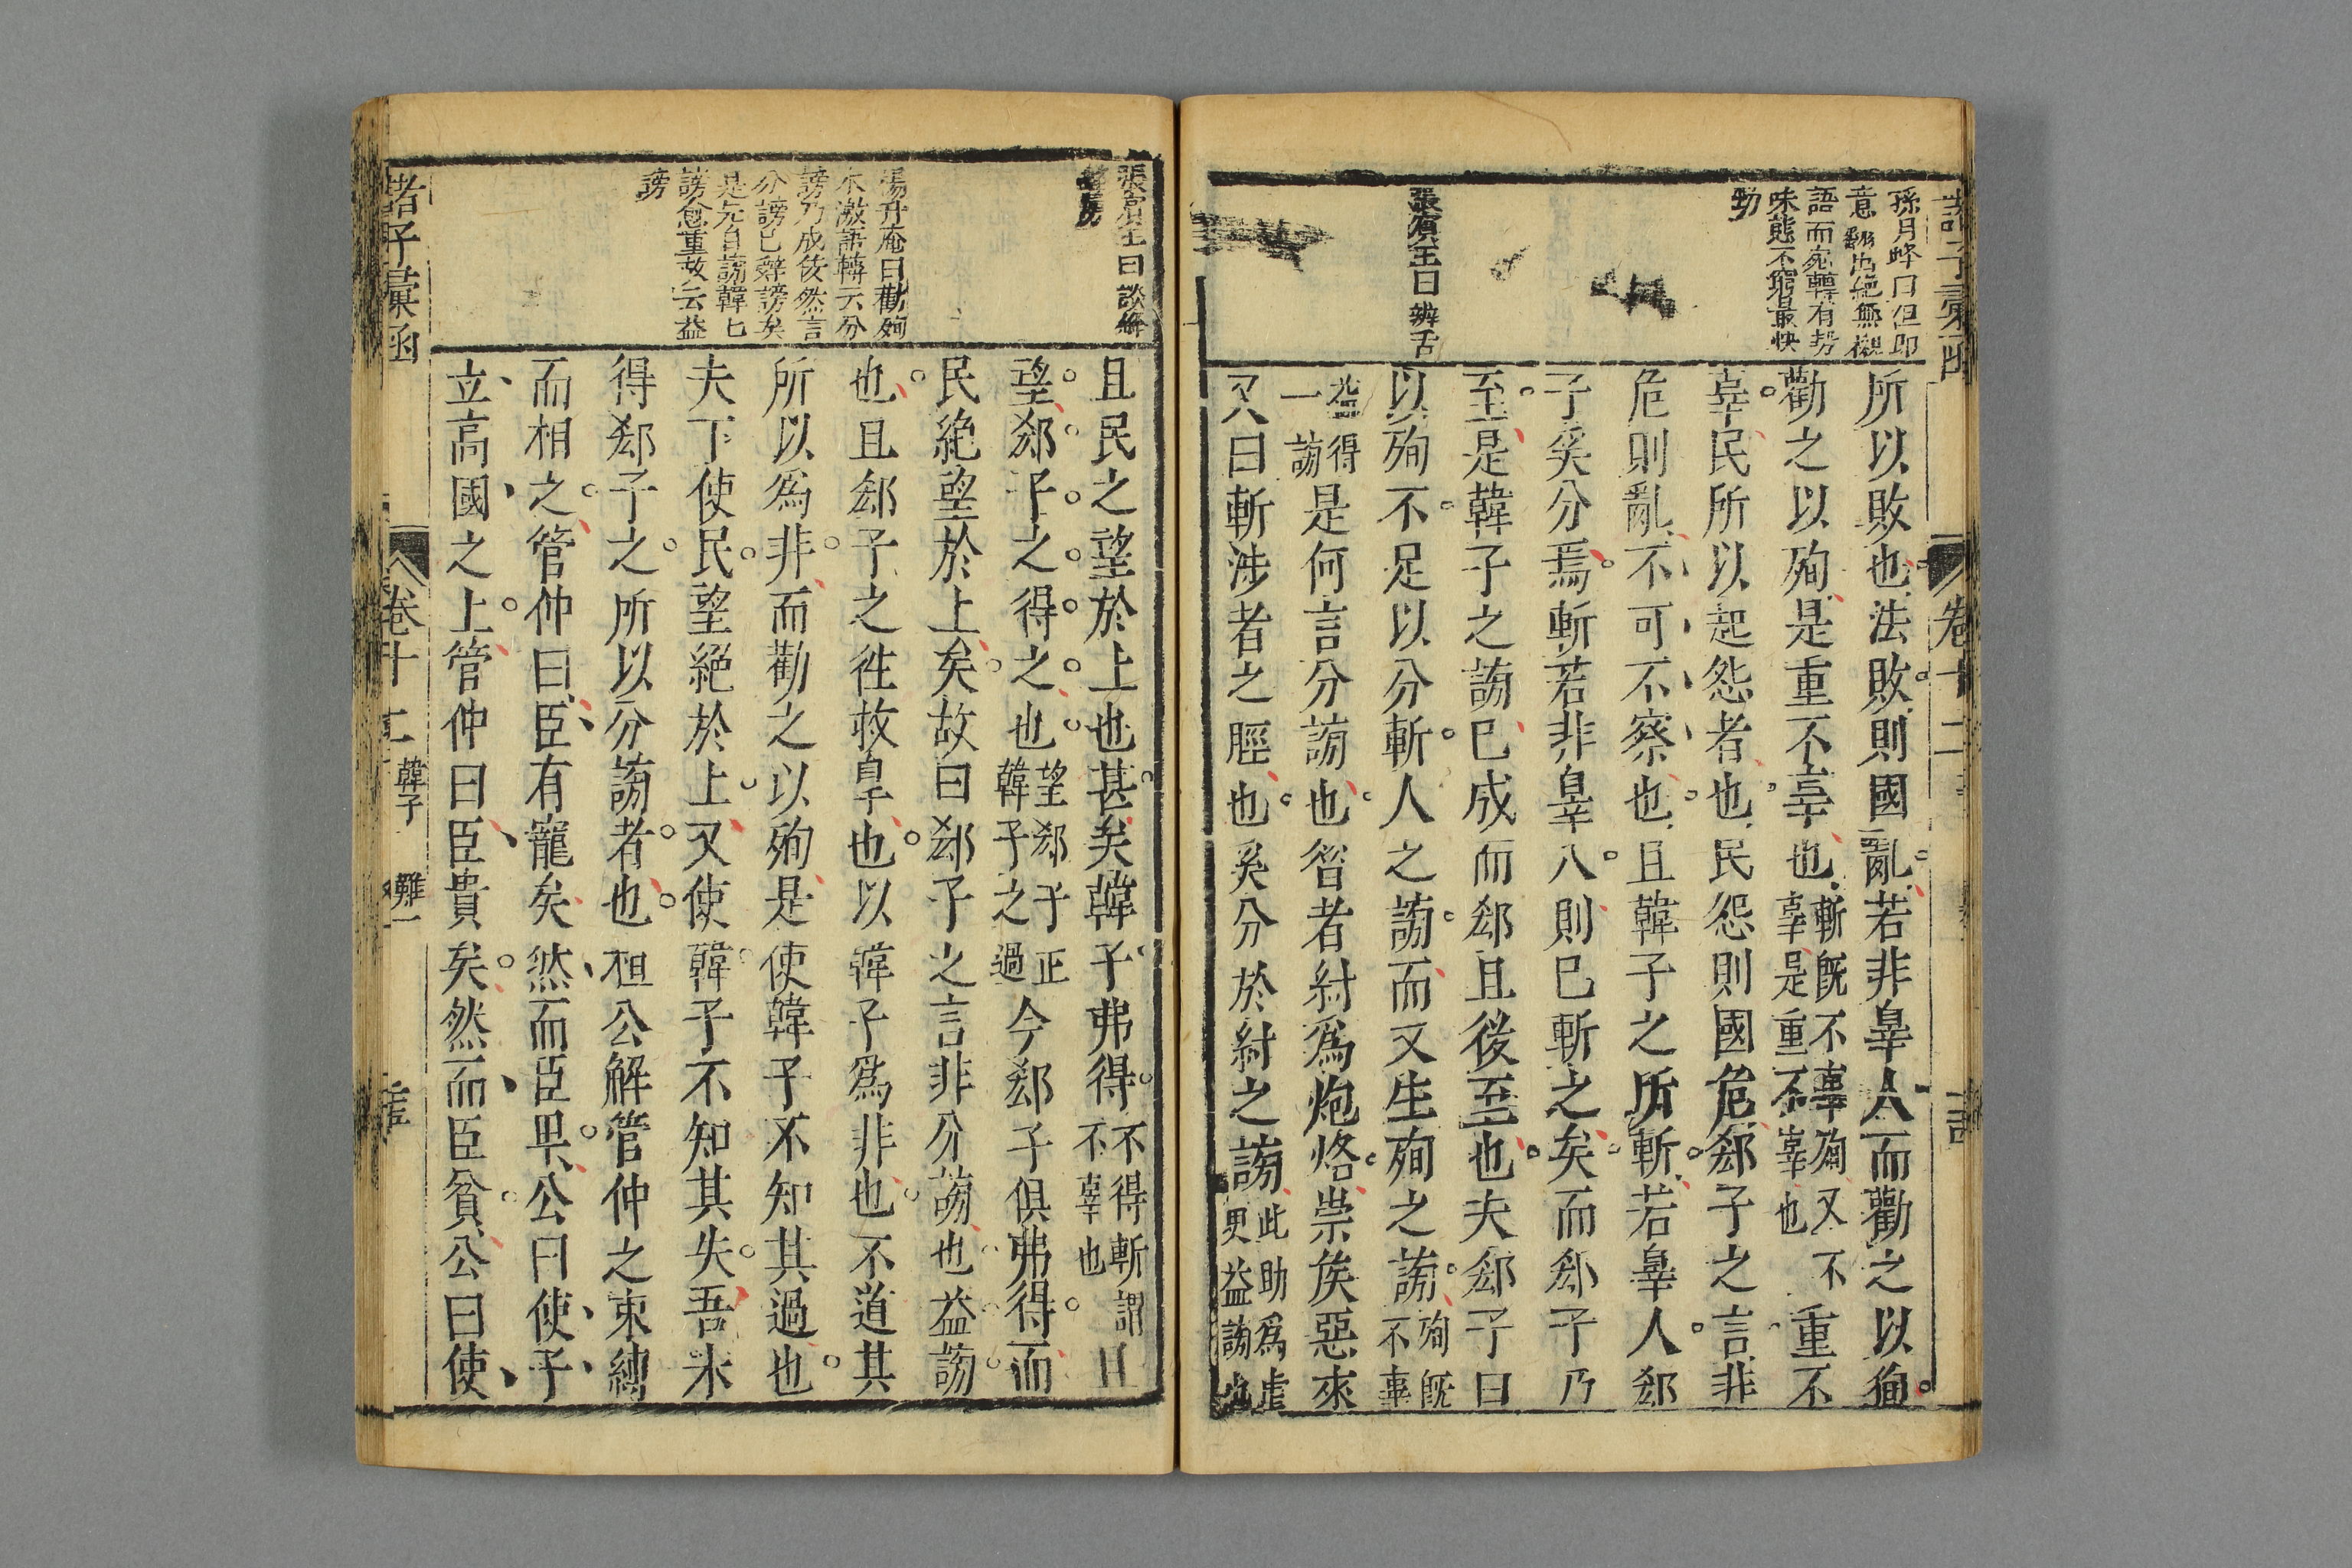 孫月峰曰但即
意翻出絕無襯
語而宛轉有勢
味態不窮最快
勁
張賓王曰辨舌
所以敗也法敗則國亂若非辠人而勸之以徇
勸之以殉是重不辜也斬既不辜殉又不辜是重不辜也重不
辜民所以起怨者也民怨則國危郄子之言非
危則亂不可不察也且韓子之所斬若辠人郄
子奚分焉斬若非辠人則已斬之矣而郄子乃
至是韓子之謗已成而郄且後至也夫郄子曰
以殉不足以分斬人之謗而又生殉之謗殉既不辜
得一謗是何言分謗也昝者紂為炮烙崇侯惡來
又曰斬涉者之脛也奚分於紂之謗此助為虐更益謗也
卷十二
張賓王曰談鋒
楊升庵曰勸殉
不激語轉云分
謗乃成佞然言
分謗已辭謗矣
是先自謗韓也
謗愈重故云益
謗
且民之望於上也甚矣韓子弗得不得斬謂不辜也且
望郄子之得之也望郄子正韓子之過今郄子俱弗得而
民絕望於上矣故曰郄子之言非分謗也益謗
也且郄子之徃救辠也以韓子為非也不道其
所以為非而勸之以殉是使韓子不知其過也
夫下使民望絕於上又使韓子不知其失吾未
得郄子之所以分謗者也桓公解管仲之束縛
而相之管仲曰臣有寵矣然而臣卑公曰使子
立高國之上管仲曰臣貴矣然而臣貧公曰使
諸子彙函
卷十二
韓子
難一